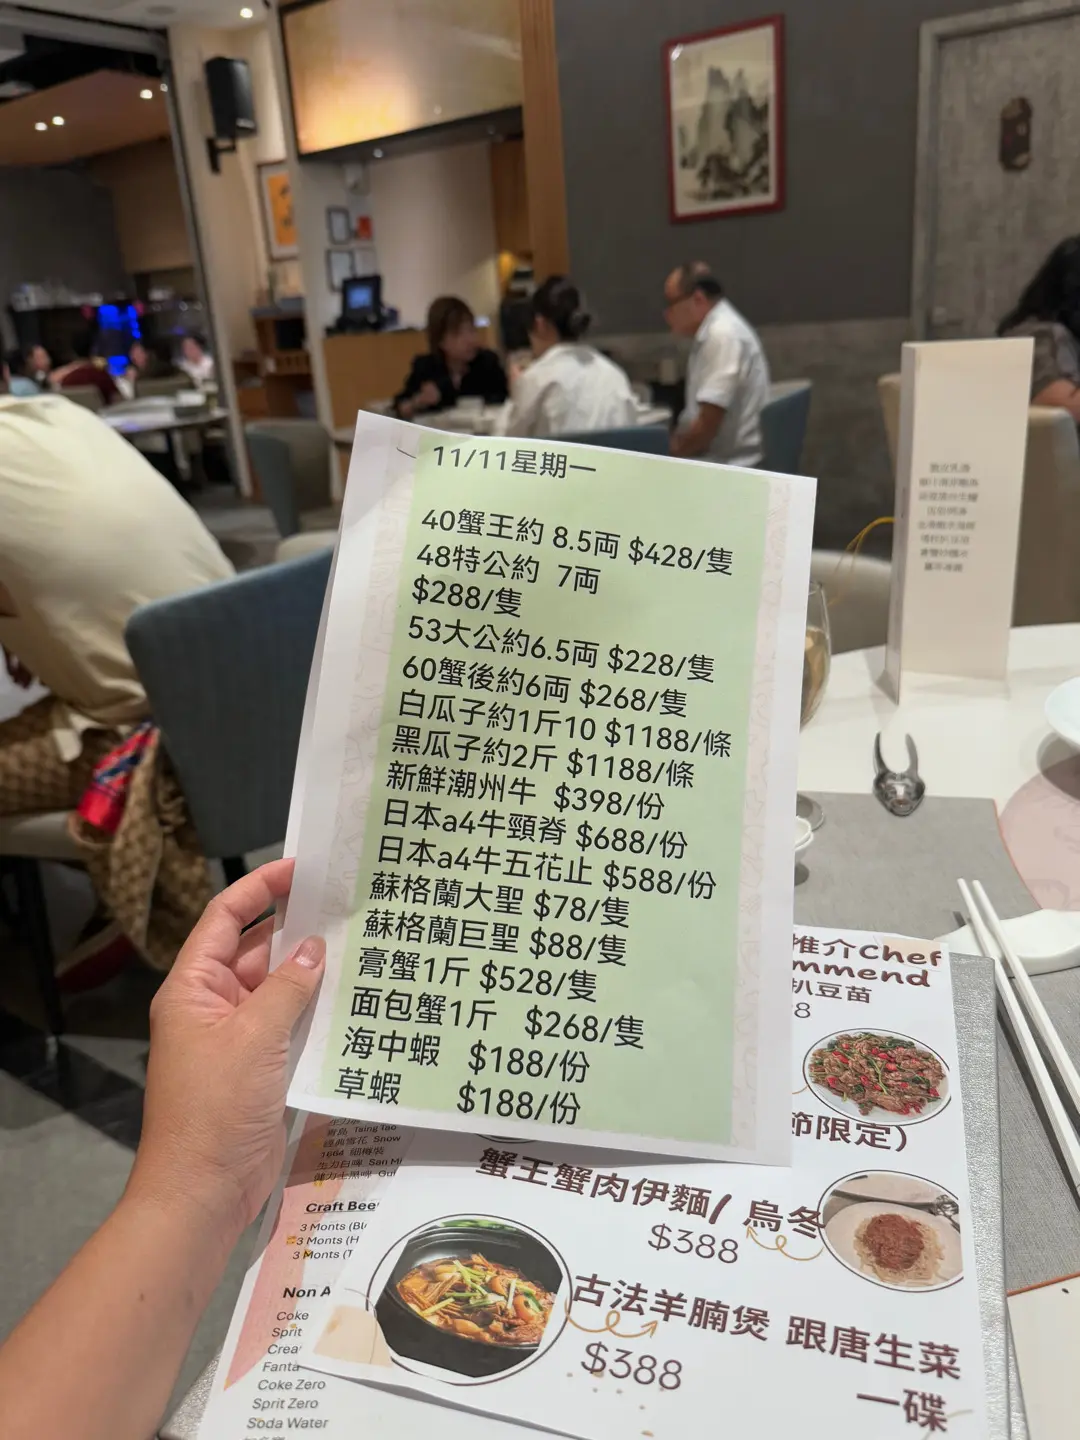 11/11星期一
40蟹王約 8.5両 $428/隻
48特公約 7両
$288/隻
53大公約6.5両 $228/隻
60蟹後約6両 $268/隻
白瓜子約1斤10 $1188/條
黑瓜子約2斤 $1188/條
新鮮潮州牛 $398/份
日本a4牛頸脊 $688/份
日本a4牛五花止 $588/份
蘇格蘭大聖 $78/隻
蘇格蘭巨聖 $88/隻
膏蟹1斤 $528/隻
面包蟹1斤 $268/隻
海中蝦 $188/份
草蝦 $188/份
推介Chef
mmend
扒豆苗
8
節限定)
蟹王蟹肉伊麵/ 烏冬
$388
古法羊腩煲 跟唐生菜
一碟
$388
青島 Tsing Tao
經典雪花 Snow
1664
San Mi
Craft Bee
3 Monts (Bl
3 Monts (H
3 Monts (T
Non A
Coke
Sprit
Crea
Fanta
Coke Zero
Sprit Zero
Soda Water